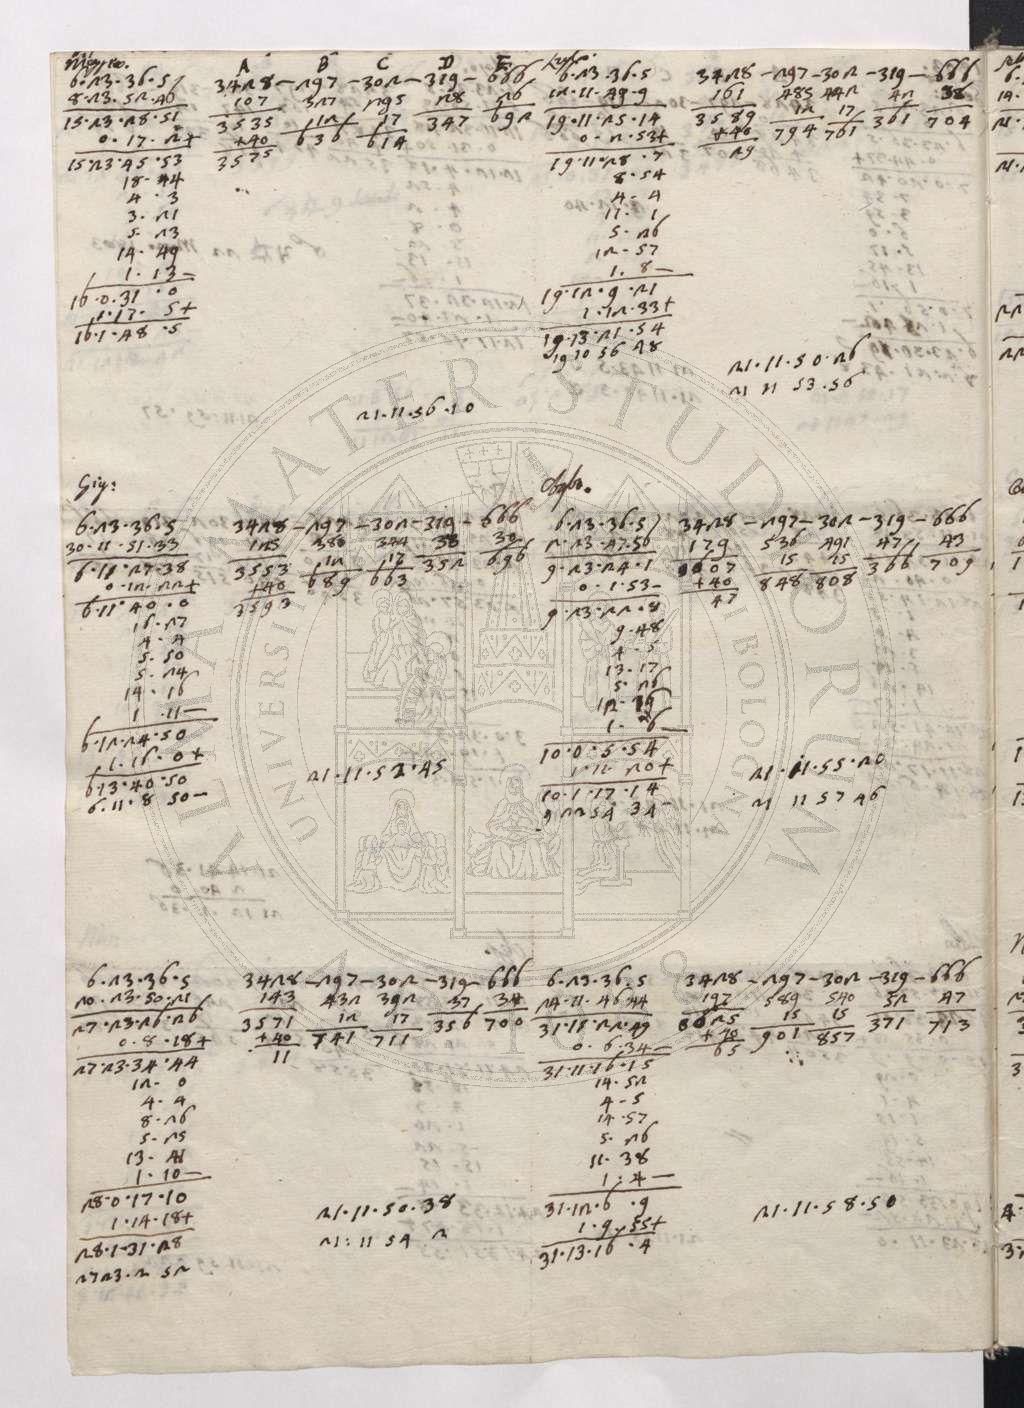 Maggio.
A B C D E
6·23·36·5 3428—297—302—319—666
8·23·52·46 107 327 295 28 26
15·23·28·51 3535 12 17 347 692
0·17·2+ +40 636 614
15·23·45·53 3575
18·44
4·3
3·21
5·23
14·49
1·13—
16·0·31·0
1·17·5+
16·1·48·5
21·11·56·10
6·23·36·5 3428—297—302—319—666
12·11·49·9 161 485 442 42 38
19·11·25·14 3589 12 17 361 704
0·2·53+ +40 794 761
19·11·28·7 29
8·54
4·4
11·1
5·26
12·57
1·8—
19·12·9·21
1·12·33+
19·13·21·54
19 10 56 48
21·11·50·26
21 11 53·56
Giug:
6·23·36·5 3428—297—302—319—666
30·11·51·33 125 380 344 33 30
6·11·27·38 3553 12 17 352 696
0·12·22+ +40 689 663
6·11·40·0 3593
16·27
4·4
5·50
5·24
14·16
1·11—
6·12·24·50
1·16·0+
6·13·40·50
6·11·8 50—
21·11·52·45
6·23·36·5 3428—297—302—319—666
2·23·47·56 179 536 491 47 43
9·23·24·1 3607 15 15 366 709
0·1·53— +40 848 808
9·23·22·8 47
9·48
4·5
13·17
5·26
1·6—
10·0·5·54
1·11·20+
10·1·17·14
9 22 54 34
21·11·55·20
21 11 57 46
6·23·36·5 3428—297—302—319—666
20·23·50·21 143 432 392 37 34
27·23·26·26 3571 12 17 356 700
0·8·18+ +40 741 711
27·23·34·44 11
12·0
4·4
8·26
5·25
13·41
1·10—
28·0·17·10
1·14·18+
28·1·31·28
27 23·2 52
21·11·50·38
21·11 54 2
6·23·36·5 3428—297—302—319—666
24·11·46·44 197 589 540 52 47
31·11·22·49 3625 15 15 371 713
0·6·34— +40 901 857
31·11·16·15 65
14·52
4·5
14·57
5·26
11·38
1·4—
31·12·6·9
1·9·55+
31·13·16·4
21·11·58·50